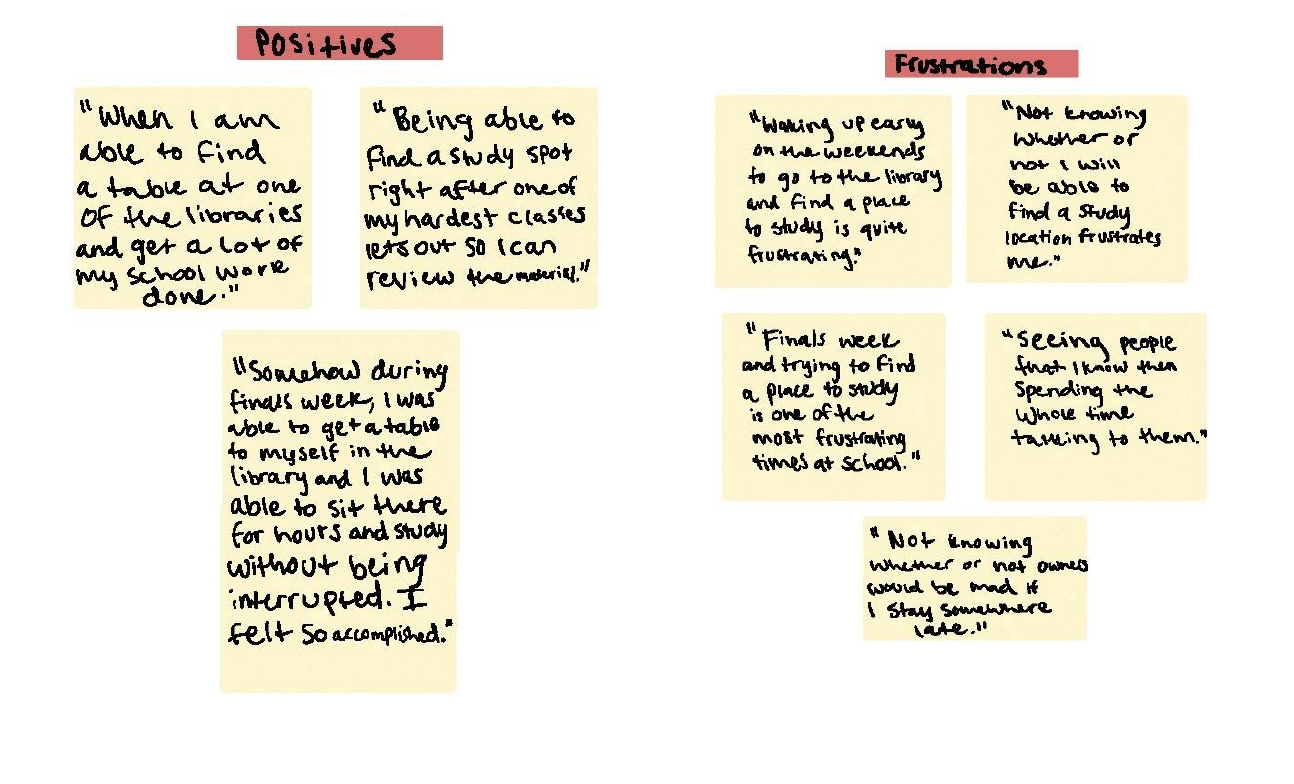 Positives
"When I am
able to find
a table at one
of the libraries
and get a lot of
my school work
done."
"Being able to
find a study spot
right after one of
my hardest classes
lets out so I can
review the material."
"Somehow during
finals week, I was
able to get a table
to myself in the
library and I was
able to sit there
for hours and study
without being
interrupted. I
felt so accomplished."
Frustrations
"Waking up early
on the weekends
to go to the library
and find a place
to study is quite
frustrating."
"Not knowing
whether or
not I will
be able to
find a study
location frustrates
me."
"Finals week
and trying to find
a place to study
is one of the
most frustrating
times at school."
"Seeing people
that I know then
spending the
whole time
talking to them."
"Not knowing
whether or not owners
would be mad if
I stay somewhere
late."